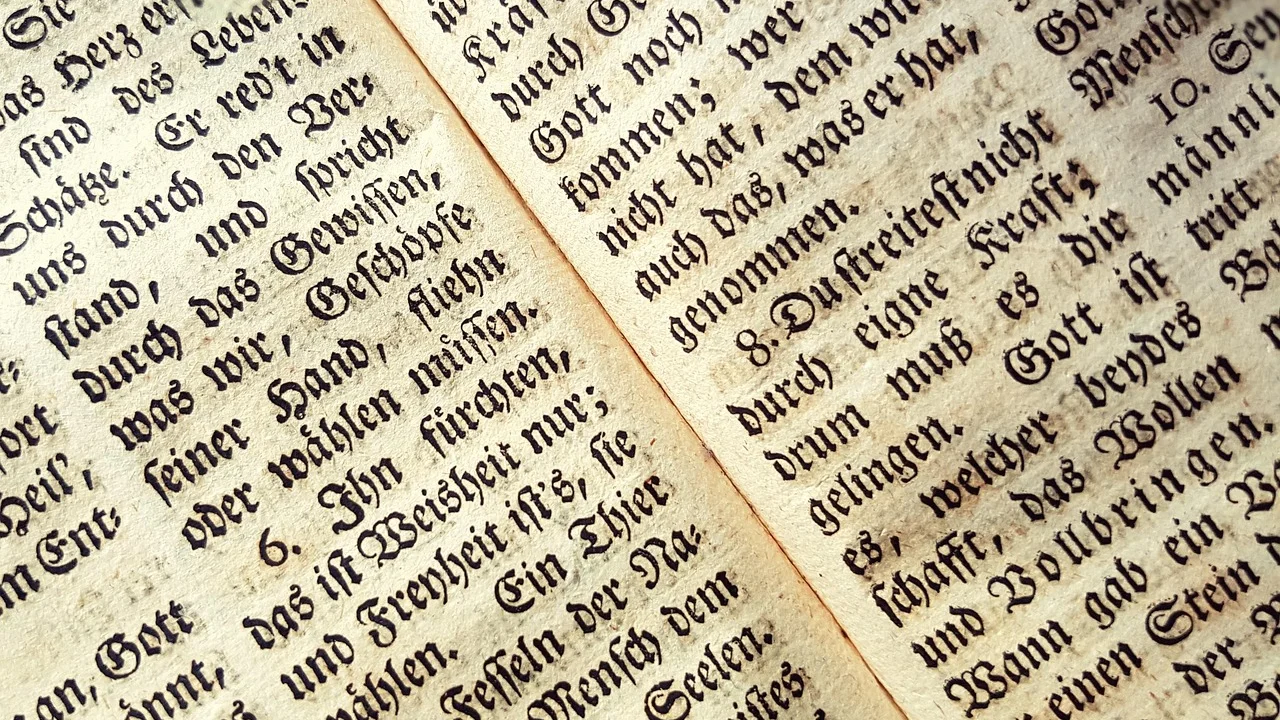 ort
Heil',
Ent⸗
an, Gott
Sie
das Herz
sind des
Schätze. Er red't in
uns durch den Ver⸗
stand, und spricht
durch das Gewissen,
was wir, Geschöpfe
seiner Hand, fliehn
oder wählen müssen.
6. Ihn fürchten,
das ist Weisheit nur;
und Freyheit ist's, sie
wählen. Ein Thier
Fesseln der Na⸗
Mensch dem
Seelen.
durch
Gott noch
kommen; wer
nicht hat, dem wird
auch das, was er hat,
genommen.
8. Du streitest nicht
durch eigne Kraft;
drum muß es dir
gelingen. Gott ist
es, welcher beydes
schafft, das Wollen
und Vollbringen.
Wann gab ein
einen Stein
der
10.
tritt